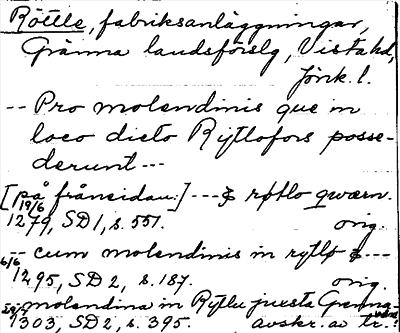 Röttle, fabriksanläggningar,
Gränna landsförslg, Vista hd,
Jönk. l.
-- Pro molendinis que in
loco dicto Rytlofors posse-
derunt ---
[på frånsidan:] --- & røtlo qwærn.
19/6 1279, SD 1, s. 551. orig.
-- cum molendinis in rytlø &---
6/6 1295, SD 2, s. 187. orig.
-- molendina in Rytlu juxta Grenna-
1303, SD 2, s. 395. avskr. av tr.